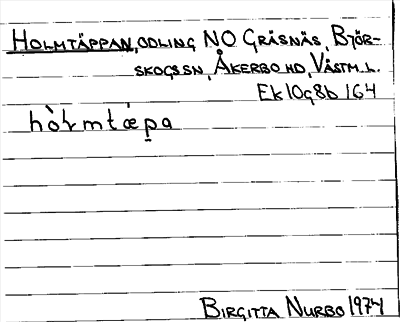 HOLMTÄPPAN, ODLING NO GRÄSNÄS, BJÖR-
SKOGS SN, ÅKERBO HD, VÄSTM. L.
Ek 10g8b 164
hòḷmtæ̀p̠a
BIRGITTA NURBO 1974